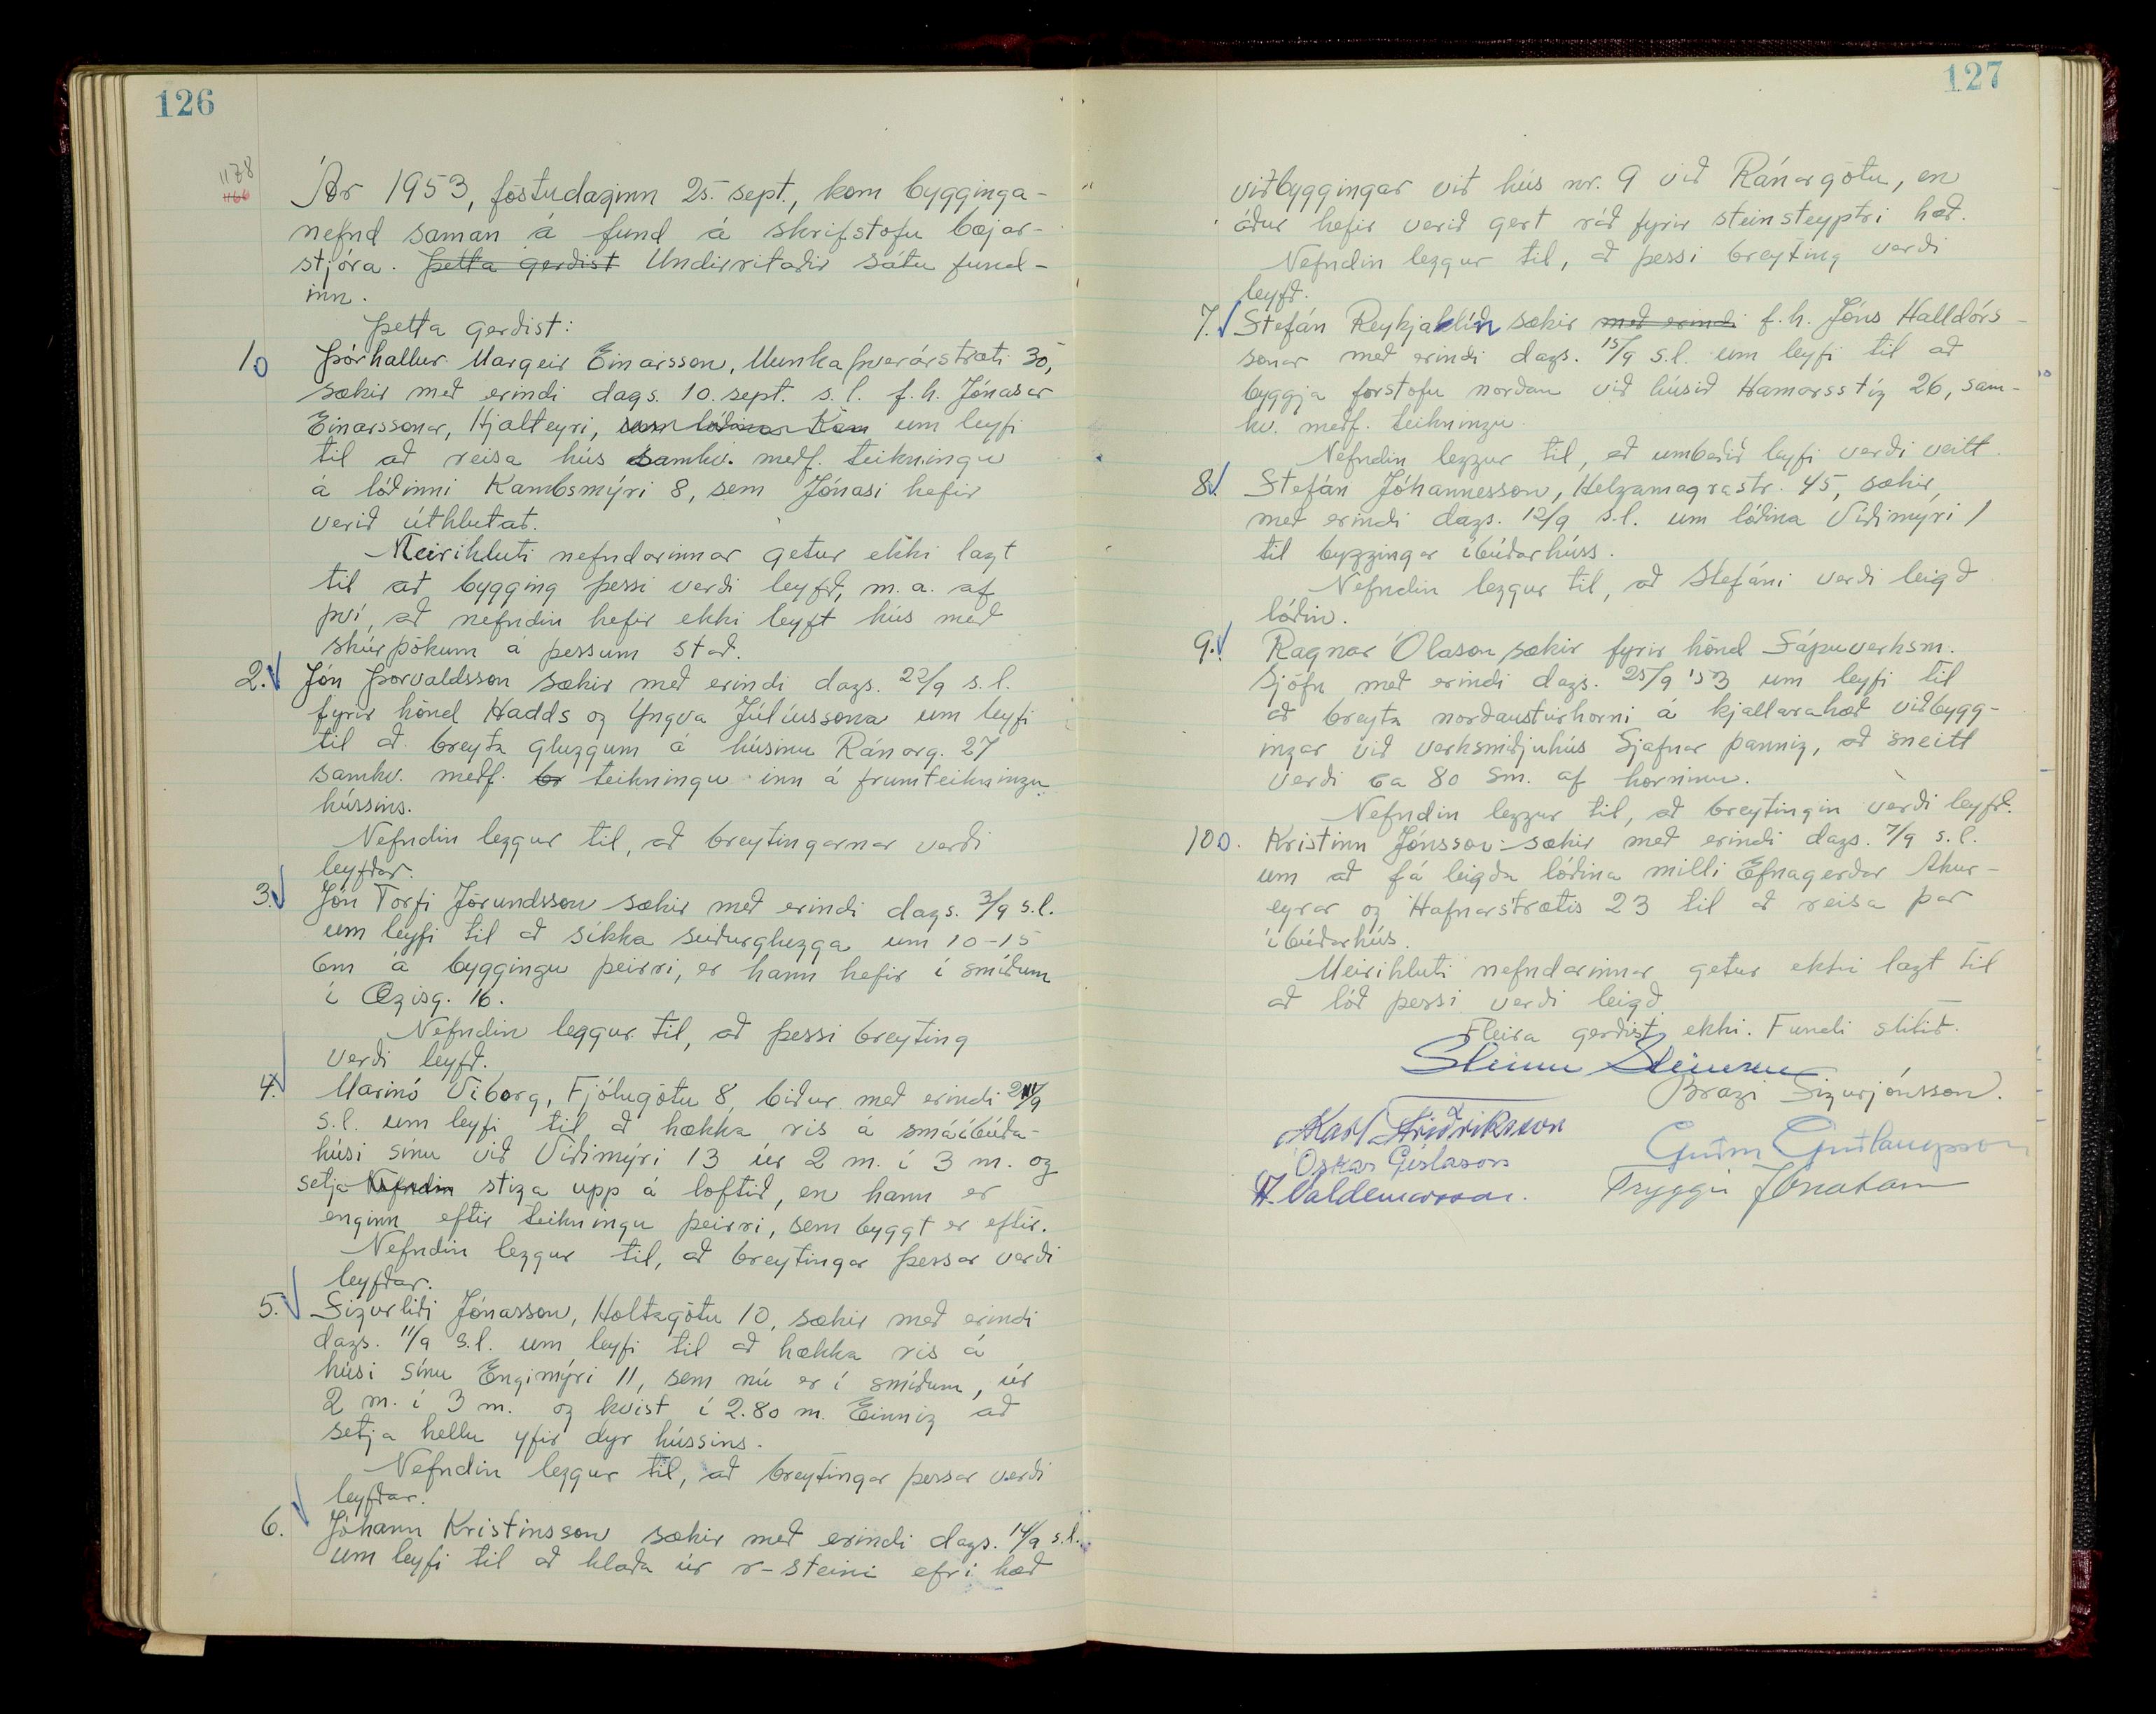 126
1178
1166
Ár 1953, föstudaginn 25. sept., kom bygginga-
nefnd saman á fund á skrifstofu bæjar-
stjóra. Þetta gerðist Undirritaðir sátu fund-
inn.
Þetta gerðist:
1. Þórhallur Margeir Einarsson, Munkaþverárstræti 30,
sækir með erindi dags. 10. sept. s.l. f.h. Jónasar
Einarssonar, Hjalteyri, um leyfi
til að reisa hús samkv. meðf. teikningu
á lóðinni Kambsmýri 8, sem Jónasi hefir
verið úthlutað.
Meirihluti nefndarinnar getur ekki lagt
til að bygging þessi verði leyfð, m.a. af
því, að nefndin hefir ekki leyft hús með
skúrþökum á þessum stað.
2. Jón Þorvaldsson sækir með erindi dags. 22/9 s.l.
fyrir hönd Hadds og Yngva Júlíussona um leyfi
til að breyta gluggum á húsinu Ránarg. 27
samkv. meðf. br teikningu inn á frumteikningu
hússins.
Nefndin leggur til, að breytingarnar verði
leyfðar.
3. Jón Torfi Jörundsson sækir með erindi dags. 3/9 s.l.
um leyfi til að síkka suðurglugga um 10-15
cm á byggingu þeirri, er hann hefir í smíðum
í Ægisg. 16.
Nefndin leggur til, að þessi breyting
verði leyfð.
4. Marinó Viborg, Fjólugötu 8, biður með erindi
s.l. um leyfi til að hækka ris á smáíbúða-
húsi sínu við Víðimýri 13 úr 2 m. í 3 m. og
setja Nefndin stiga upp á loftið, en hann er
enginn eftir teikningu þeirri, sem byggt er eftir.
Nefndin leggur til, að breytingar þessar verði
leyfðar.
5. Sigurliði Jónasson, Holtagötu 10, sækir með erindi
dags. 11/9 s.l. um leyfi til að hækka ris á
húsi sínu Engimýri 11, sem nú er í smíðum, úr
2 m. í 3 m. og kvist í 2.80 m. Einnig að
setja hellu yfir dyr hússins.
Nefndin leggur til, að breytingar þessar verði
leyfðar.
6. Jóhann Kristinsson sækir með erindi dags. 14/9 s.l.
um leyfi til að hlaða úr r-steini efri hæð
127
viðbyggingar við hús nr. 9 við Ránargötu, en
áður hefir verið gert ráð fyrir steinsteyptri hæð.
Nefndin leggur til, að þessi breyting verði
leyfð.
7. Stefán Reykjalín sækir með erindi f.h. Jóns Halldórs-
sonar með erindi dags. 15/9 s.l. um leyfi til að
byggja forstofu norðan við húsið Hamarsstíg 26, sam-
kv. meðf. teikningu.
Nefndin leggur til, að umbeðið leyfi verði veitt.
8. Stefán Jóhannesson, Helgamagrastr. 45, sækir
með erindi dags. 12/9 s.l. um lóðina Víðimýri 1
til byggingar íbúðarhúss.
Nefndin leggur til, að Stefáni verði leigð
lóðin.
9. Ragnar Ólason sækir fyrir hönd Sápuverksm.
Sjöfn með erindi dags. 25/9 '53 um leyfi til
að breyta norðausturhorni á kjallarahæð viðbygg-
ingar við verksmiðjuhús Sjafnar þannig, að sneitt
verði ca 80 sm. af horninu.
Nefndin leggur til, að breytingin verði leyfð.
10. Kristinn Jónsson sækir með erindi dags. 7/9 s.l.
um að fá leigða lóðina milli Efnagerðar Akur-
eyrar og Hafnarstrætis 23 til að reisa þar
íbúðarhús.
Meirihluti nefndarinnar getur ekki lagt til
að lóð þessi verði leigð.
Fleira gerðist ekki. Fundi slitið.
Steinn Steinsen
Bragi Sigurjónsson.
Karl Friðriksson
Guðm Guðlaugsson
Óskar Gíslason
Tryggvi Jónatans
H. Valdemarsson.